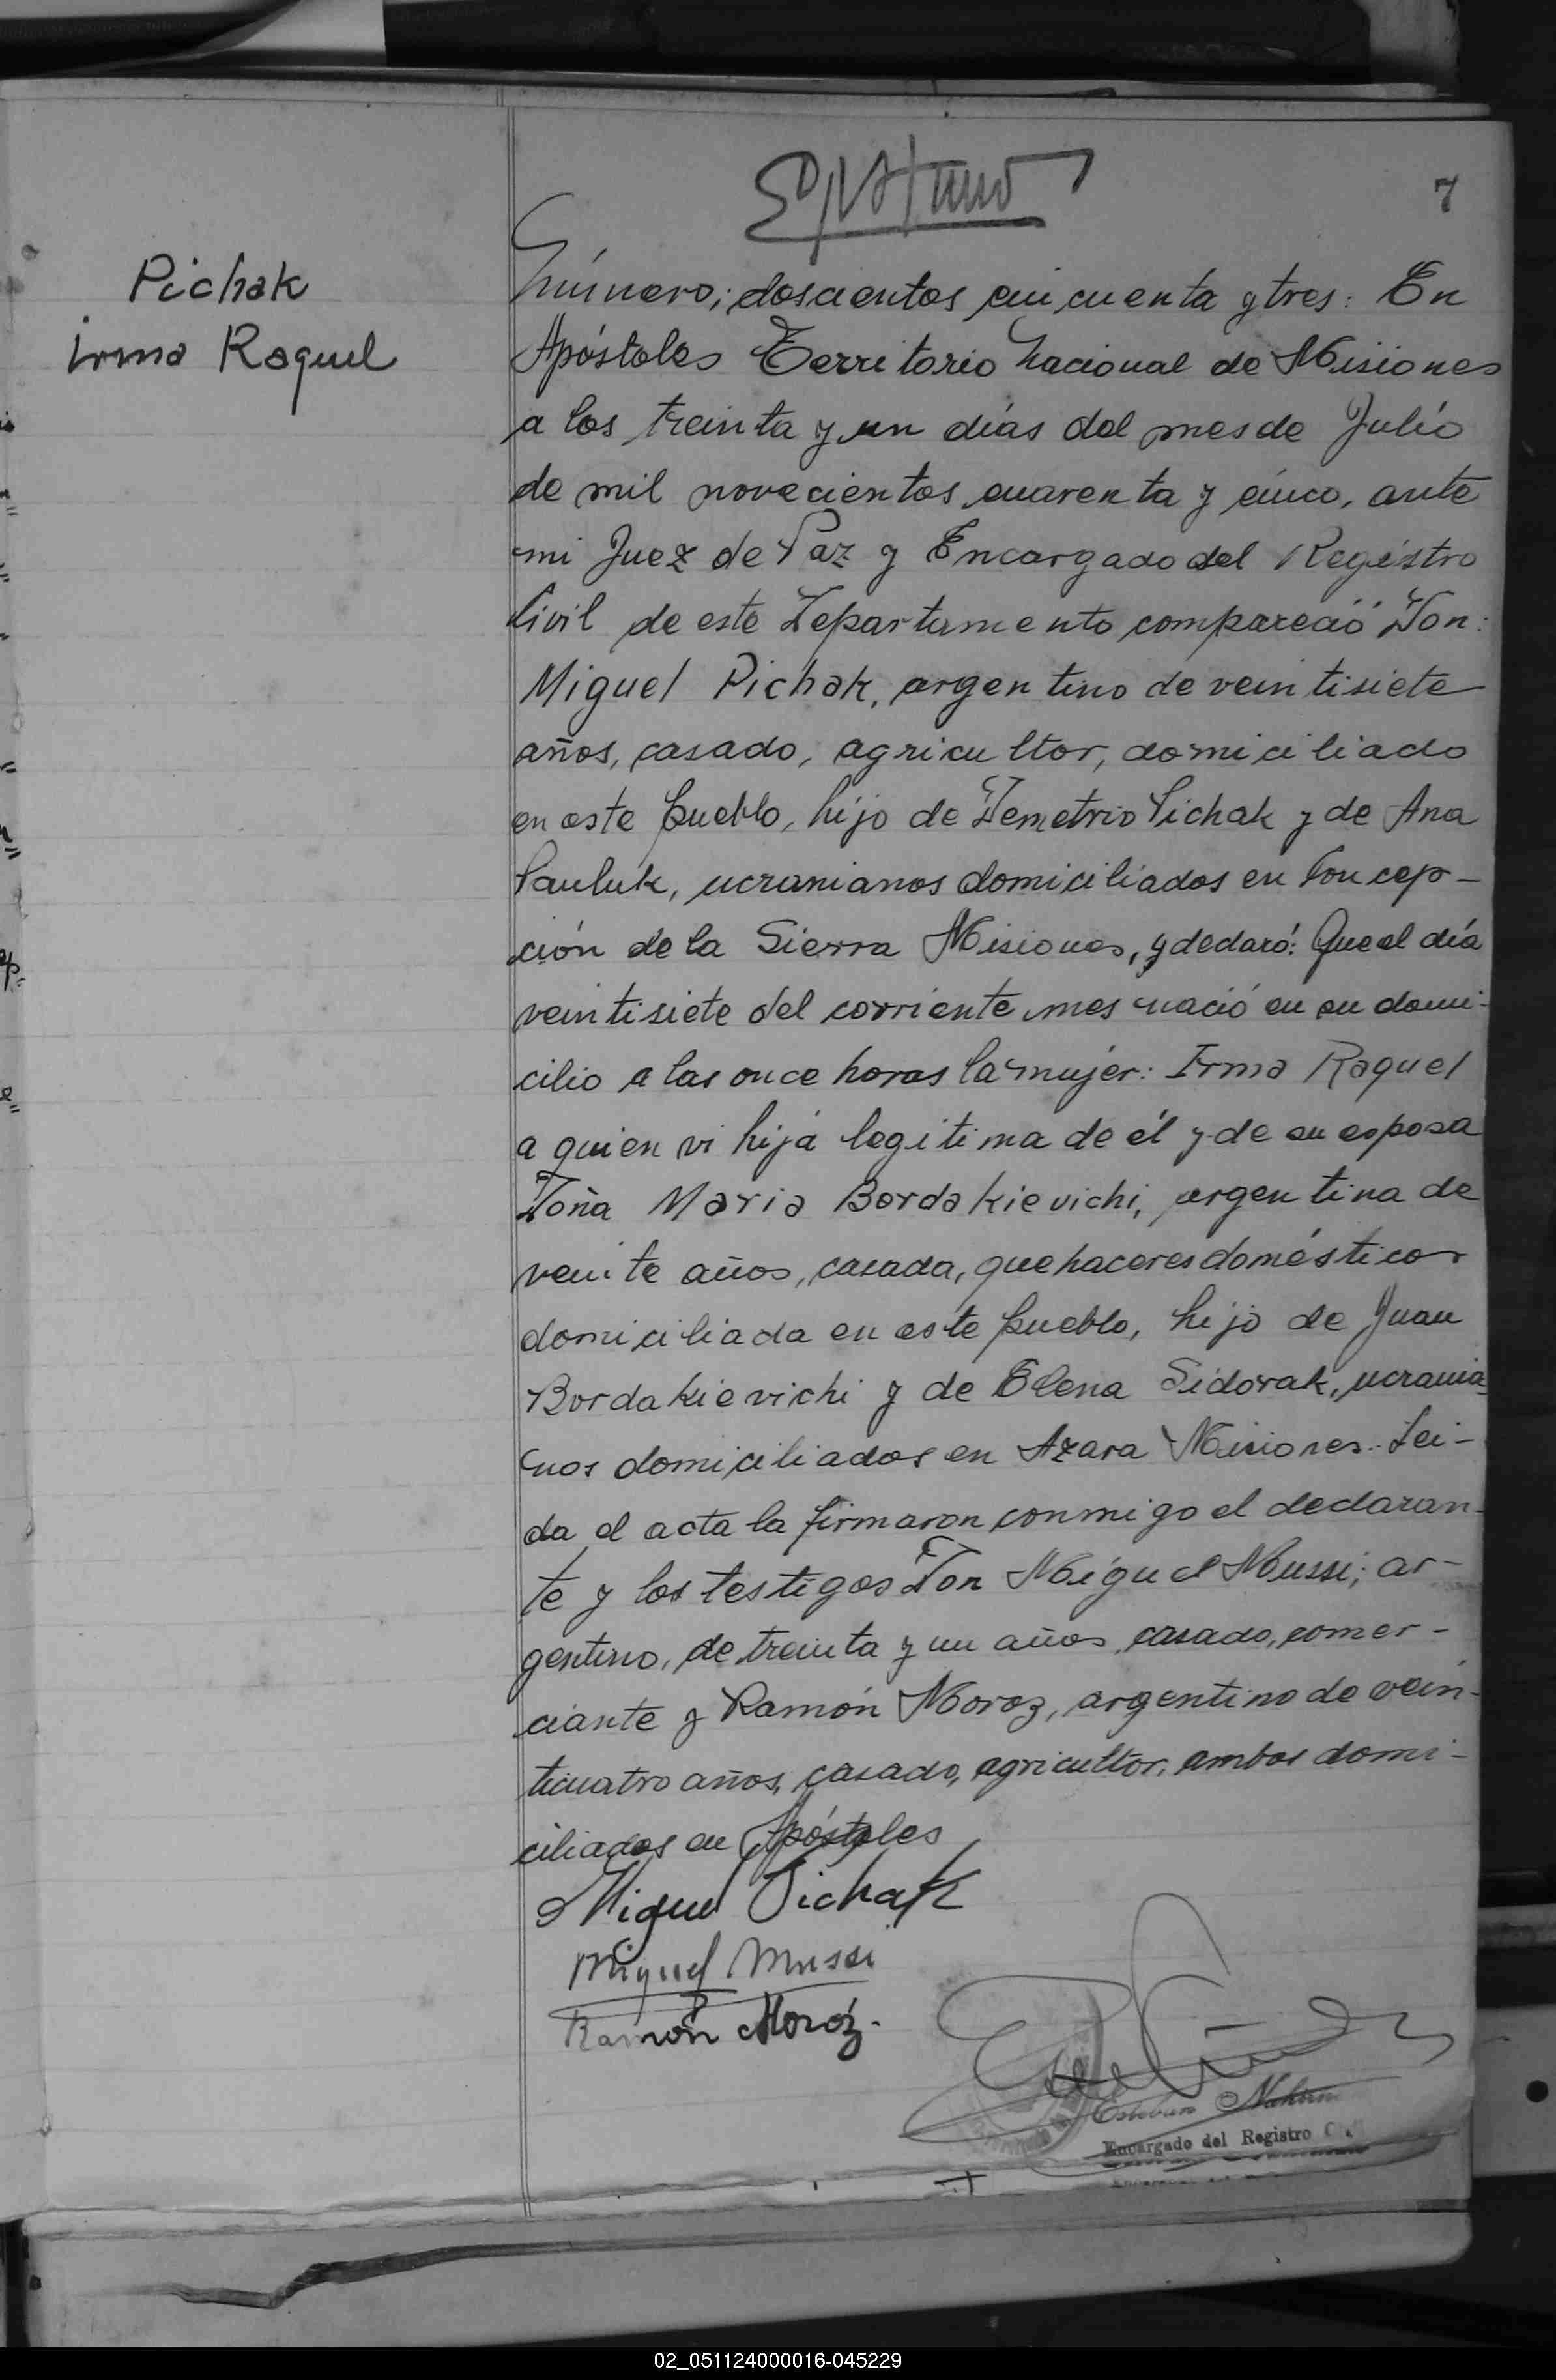 7
Pichak
Irma Raquel
Número; doscientos cincuenta y tres: En
Apóstoles Territorio Nacional de Misiones
a los treinta y un días del mes de Julio
de mil novecientos cuarenta y cinco, ante
mi Juez de Paz y Encargado del Registro
Civil de este Departamento compareció Don:
Miguel Pichak, argentino de veintisiete
años, casado, agricultor, domiciliado
en este pueblo, hijo de Demetrio Pichak y de Ana
Pauluk, ucranianos domiciliados en Concep-
ción de la Sierra Misiones, y declaró: Que el día
veintisiete del corriente mes nació en su domi-
cilio a las once horas la mujer: Irma Raquel
a quien vi hija legitima de él y de su esposa
Doña Maria Bordakievichi, argentina de
veinte años, casada, quehaceres domésticos
domiciliada en este pueblo, hija de Juan
Bordakievichi y de Elena Sidorak, ucrania-
nos domiciliados en Azara Misiones. Lei-
da el acta la firmaron conmigo el declaran-
te y los testigos Don Miguel Mussi; ar-
gentino, de treinta y un años casado, comer-
ciante y Ramón Moroz, argentino de vein-
ticuatro años, casado, agricultor, ambos domi-
ciliados en Apóstoles
Miguel Pichak
Miguel Mussi
Ramón Moróz.
Esteban
Encargado del Registro
02_051124000016-045229